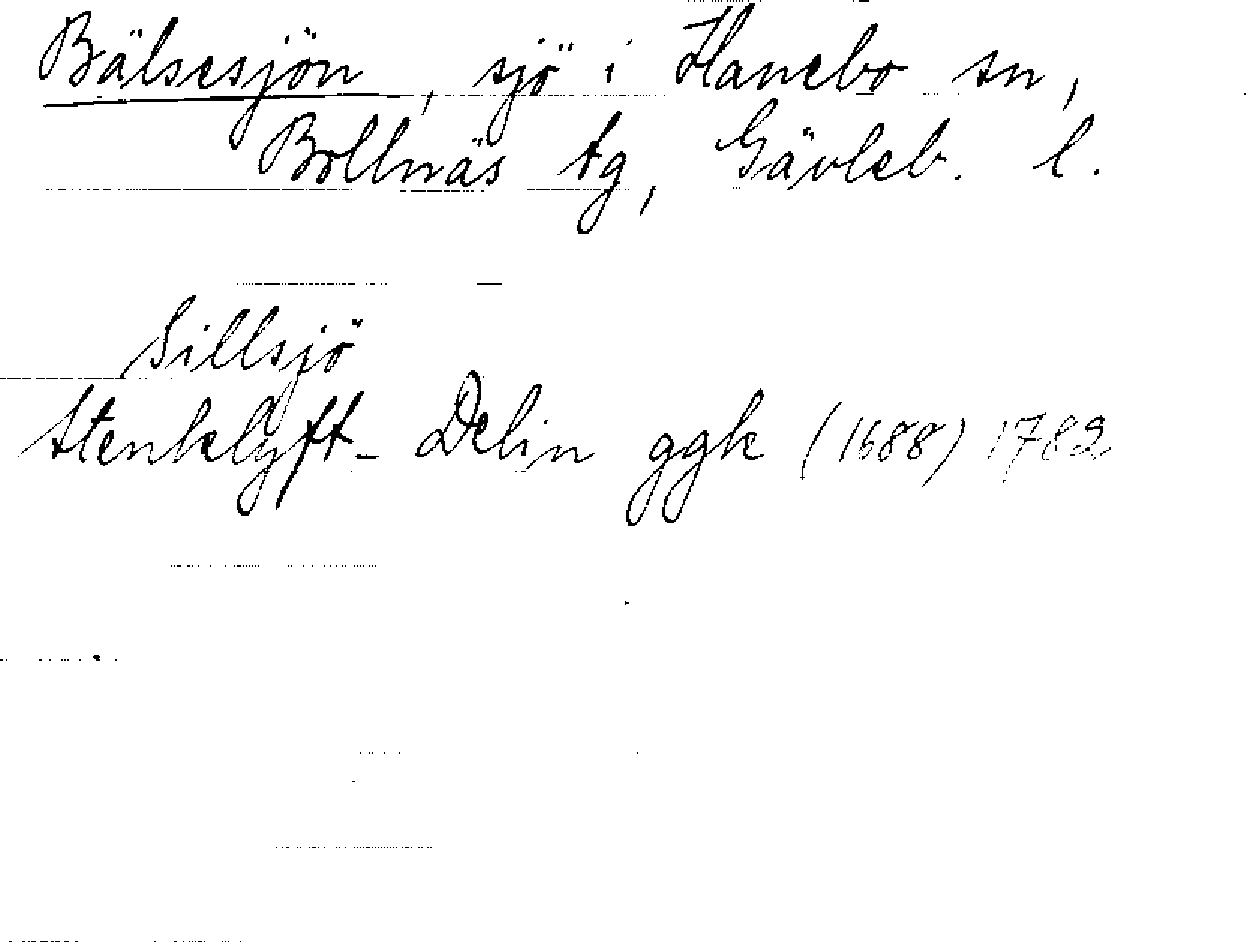 Bälsesjön, sjö i Hanebo sn,
Bollnäs tg, Gävleb. l.
Sillsjö
Stenklyft- Delin ggk (1688) 1782